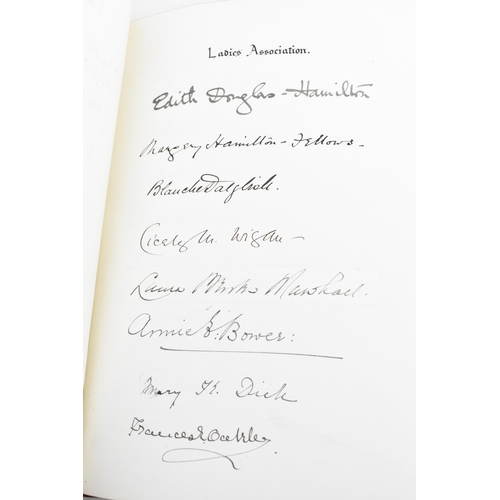 Ladies Association.
Edith Douglas-Hamilton
Margery Hamilton-Fellows-
Blanche Dalglish.
Cicely M. Wigan-
Laura Marshall.
Annie E. Bower:
Mary K. Dick
Frances E. Oakley